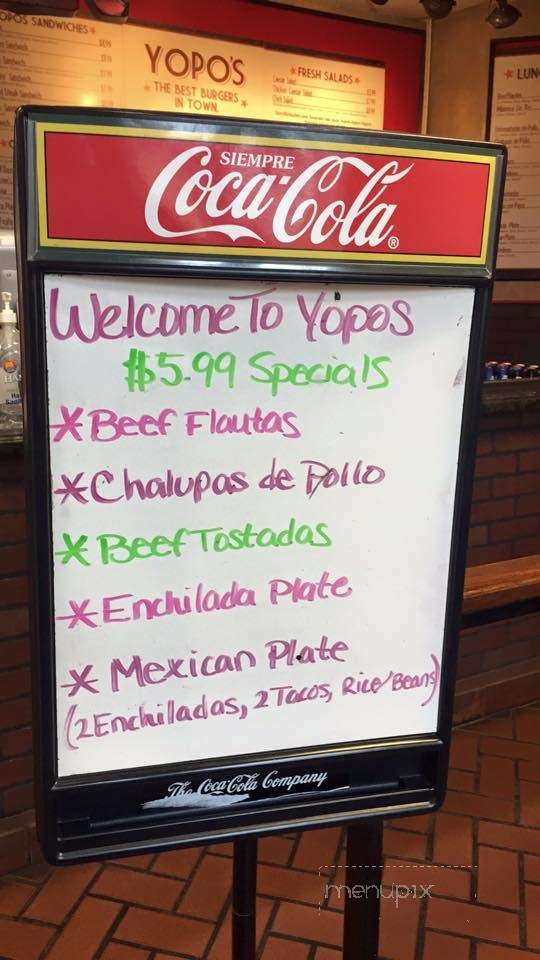 OPOS SANDWICHES
YOPO'S
THE BEST BURGERS
IN TOWN.
FRESH SALADS
LUN
SIEMPRE
Coca-Cola
Welcome To Yopos
$5.99 Specials
* Beef Flautas
* Chalupas de Pollo
* Beef Tostadas
* Enchilada Plate
* Mexican Plate
(2 Enchiladas, 2 Tacos, Rice/Beans)
The Coca-Cola Company
menupix